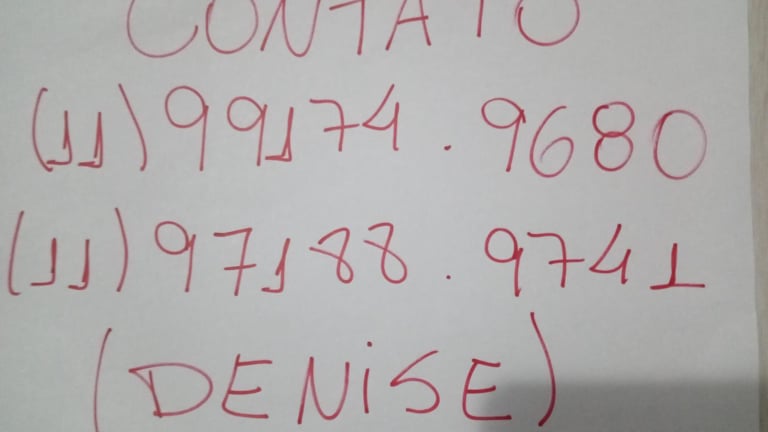 CONTATO
(11) 99174.9680
(11) 97188.9741
(DENiSE)